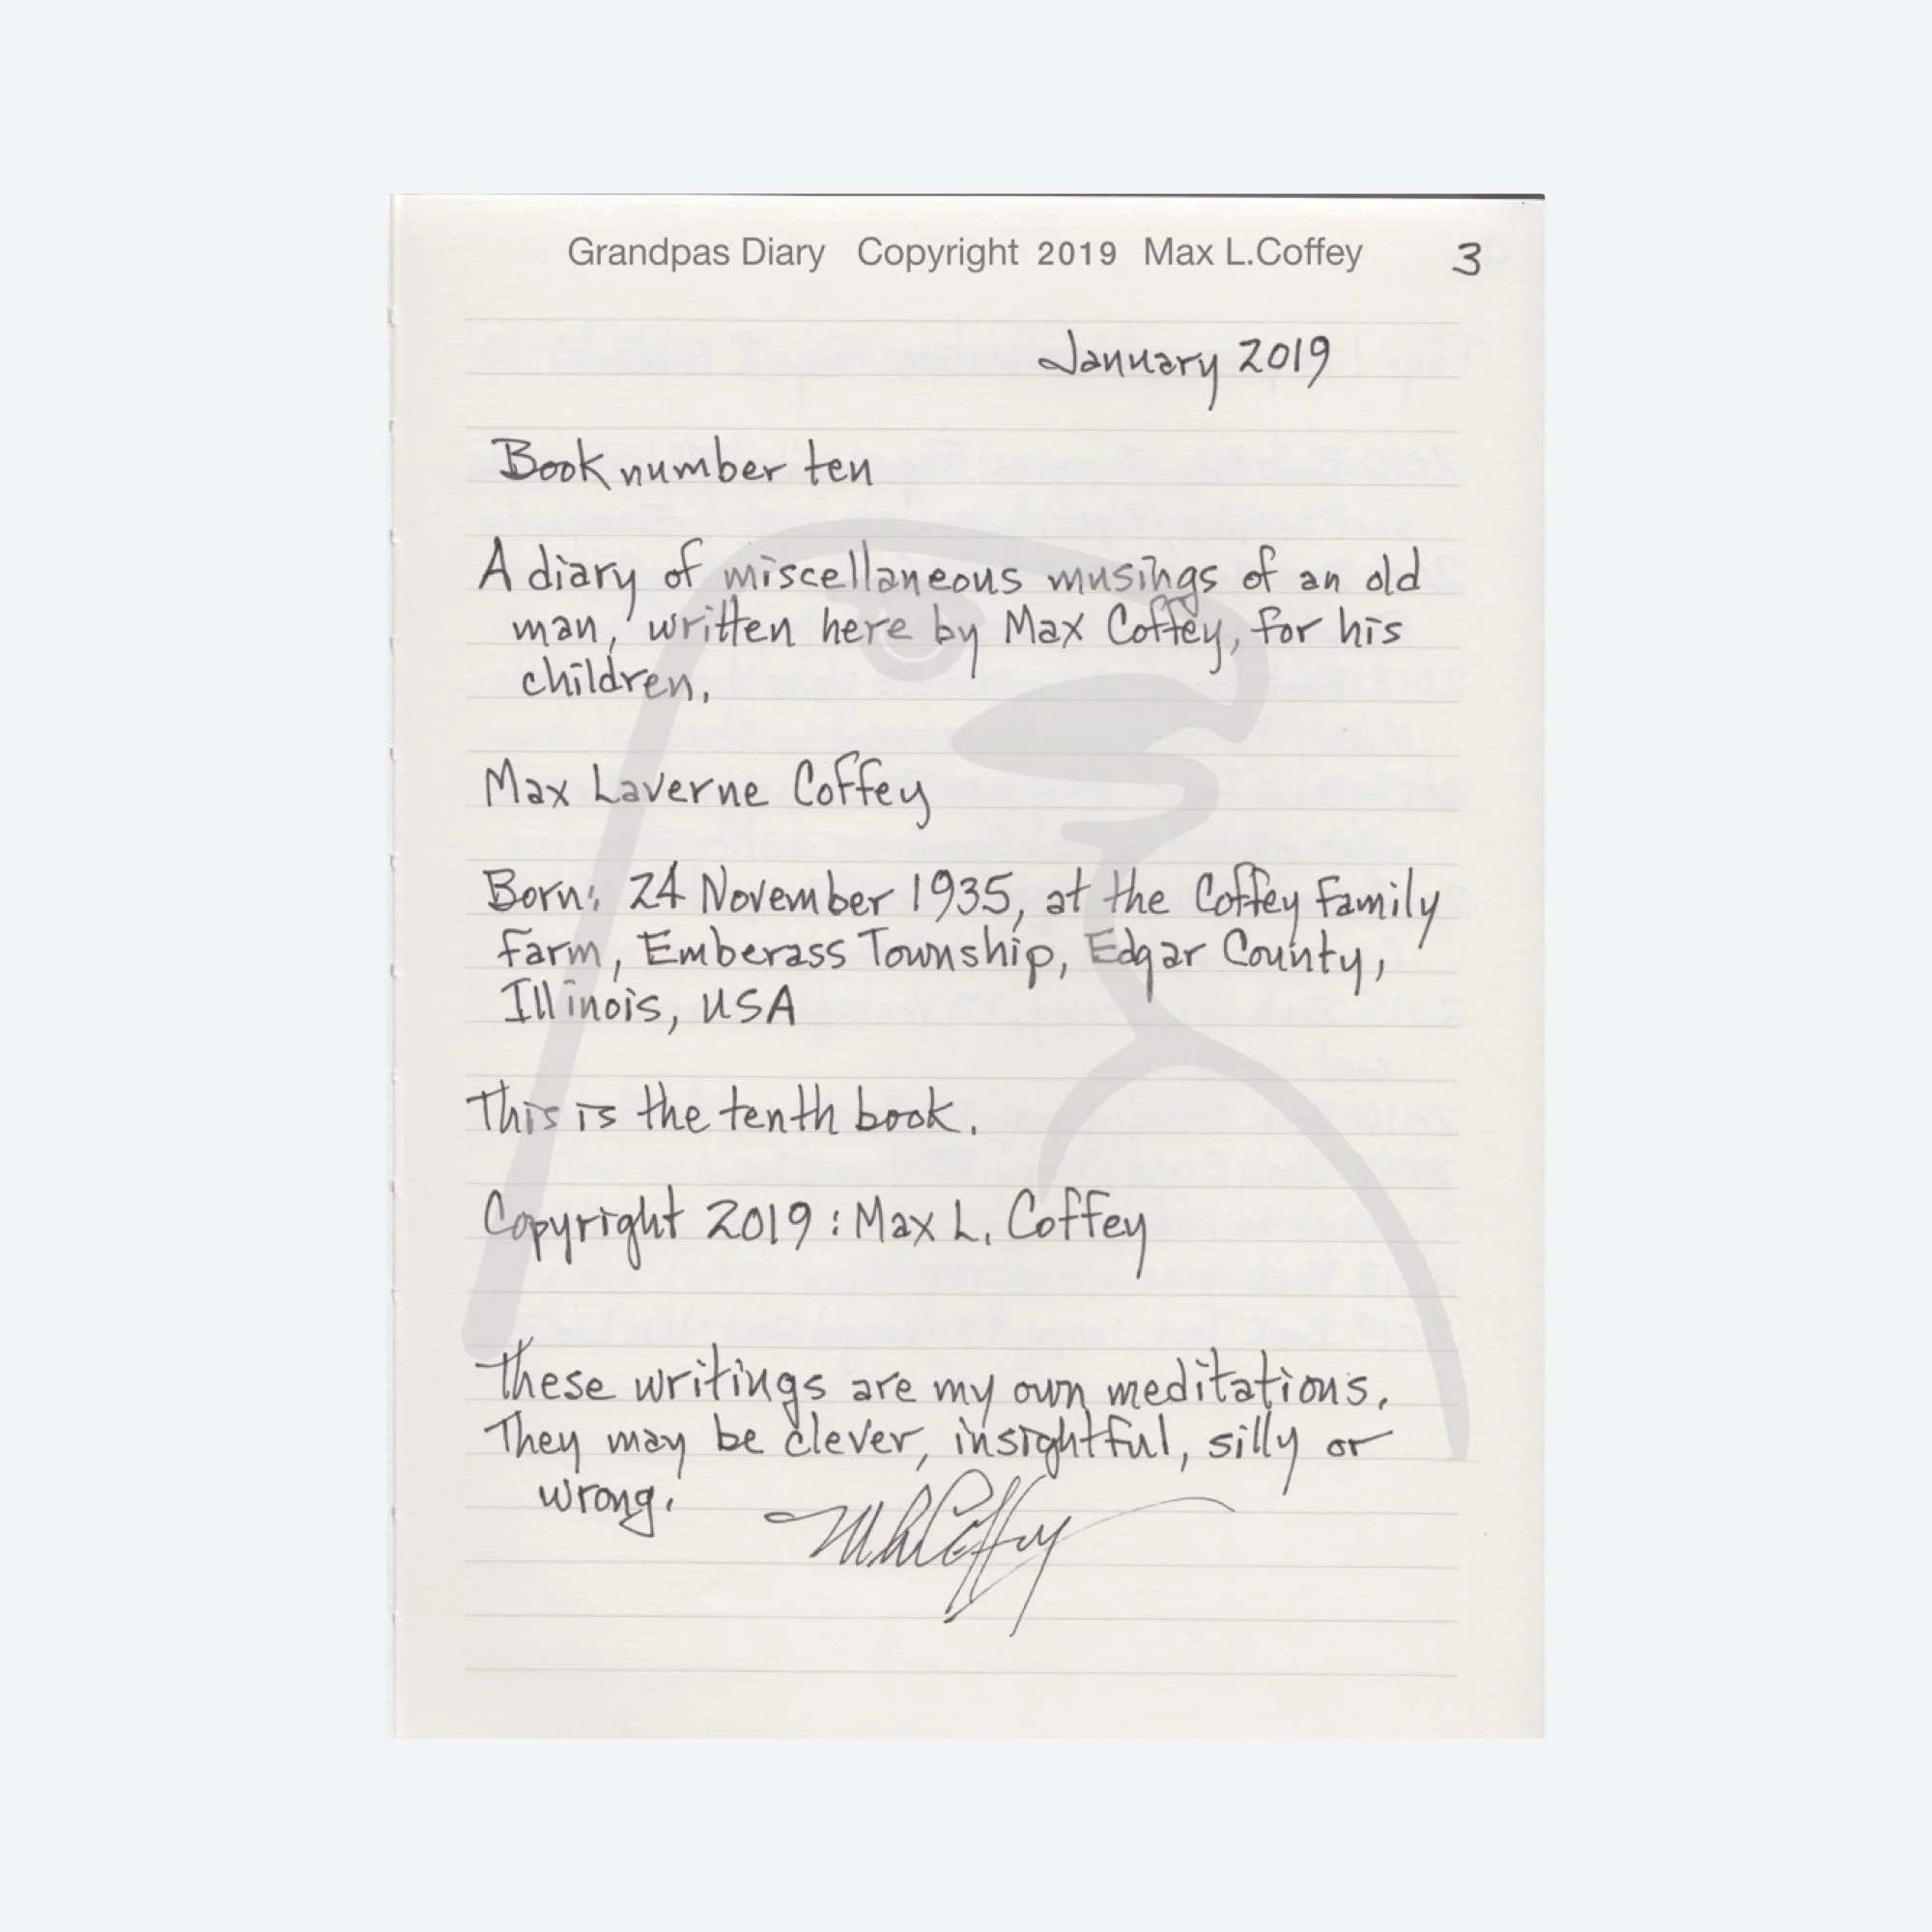 Grandpas Diary Copyright 2019 Max L.Coffey 3
January 2019
Book number ten
A diary of miscellaneous musings of an old
man, written here by Max Coffey, for his
children.
Max Laverne Coffey
Born: 24 November 1935, at the Coffey family
farm, Emberass Township, Edgar County,
Illinois, USA
This is the tenth book.
Copyright 2019 : Max L. Coffey
These writings are my own meditations.
They may be clever, insightful, silly or
wrong.
MLCoffey